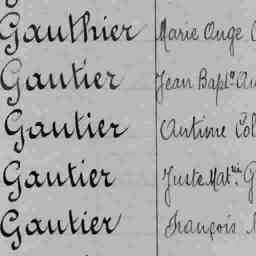 Gauthier Marie Ange
Gautier Jean Bapte
Gautier Antime
Gautier Juste Mat
Gautier François